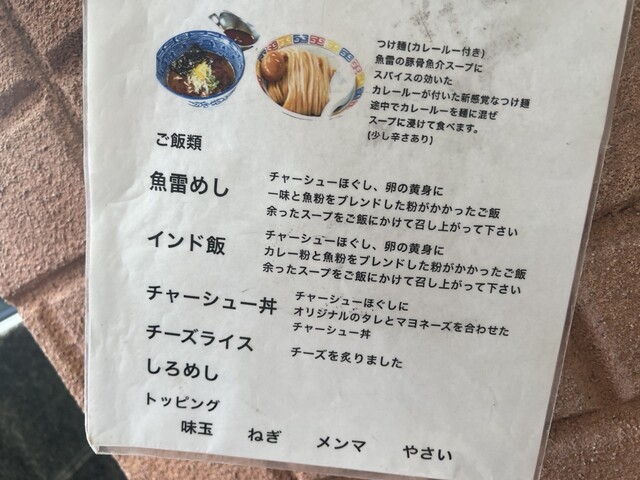 つけ麺(カレールー付き)
魚雷の豚骨魚介スープに
スパイスの効いた
カレールーが付いた新感覚なつけ麺
途中でカレールーを麺に混ぜ
スープに浸けて食べます。
(少し辛さあり)
ご飯類
魚雷めし
チャーシューほぐし、卵の黄身に
一味と魚粉をブレンドした粉がかかったご飯
余ったスープをご飯にかけて召し上がって下さい
インド飯
チャーシューほぐし、卵の黄身に
カレー粉と魚粉をブレンドした粉がかかったご飯
余ったスープをご飯にかけて召し上がって下さい
チャーシュー丼
チャーシューほぐしに
オリジナルのタレとマヨネーズを合わせた
チャーシュー丼
チーズライス
チーズを炙りました
しろめし
トッピング
味玉 ねぎ メンマ やさい